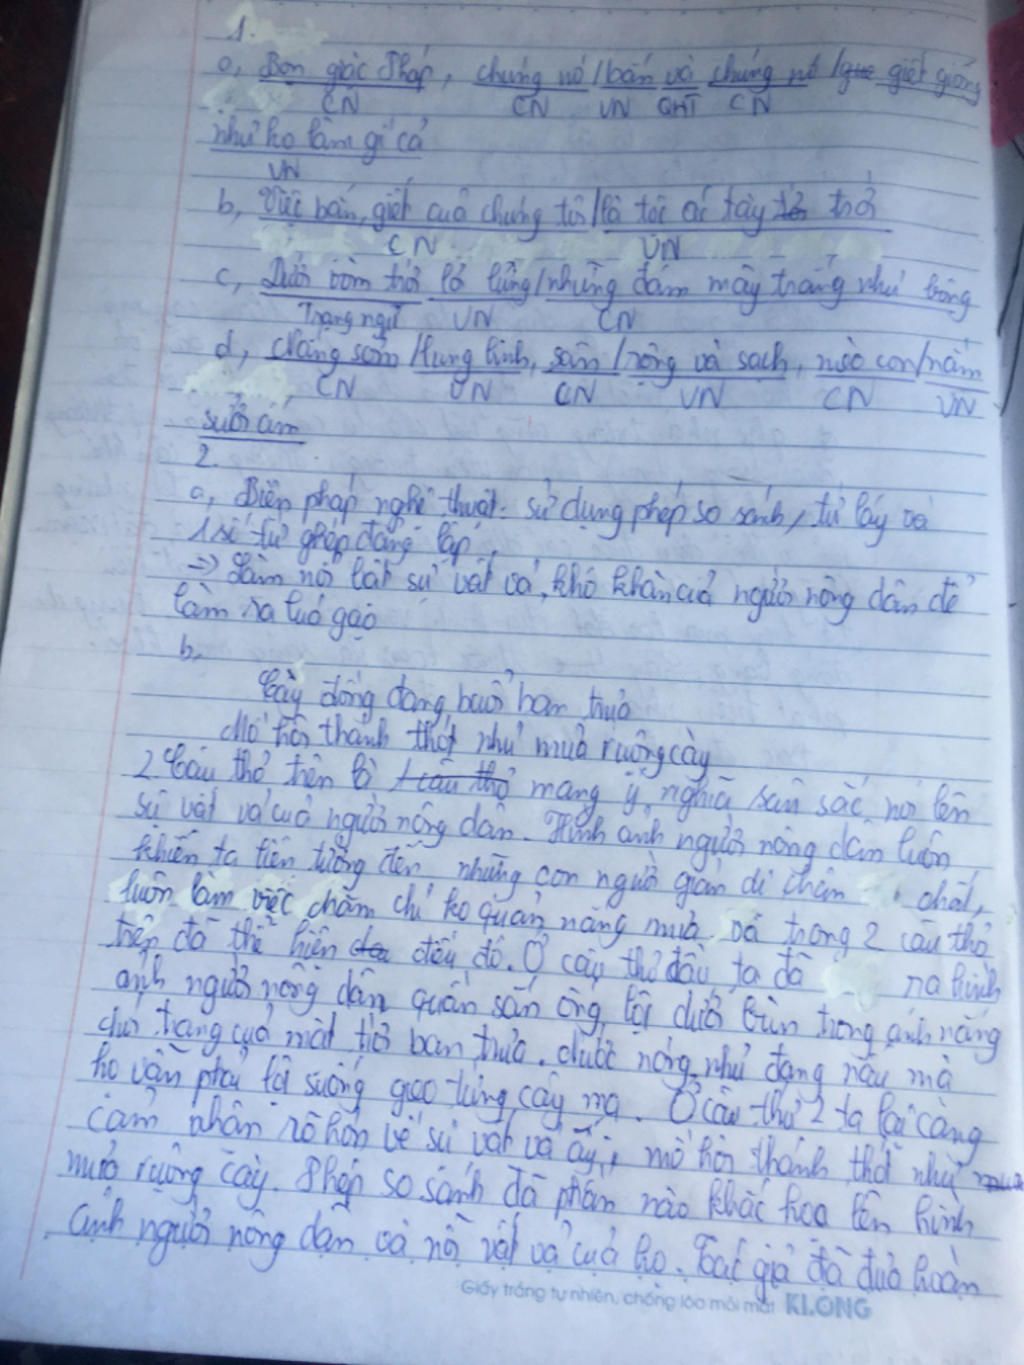 1.
a, Bọn giặc Pháp, chúng nó/bắn và chúng nó/ giết giống
CN CN VN QHT CN
như ko làm gì cả
VN
b, Việc bắn, giết của chúng tôi/là tội ác tày trời
CN VN
c, Dưới vòm trời lơ lửng/những đám mây trắng như bông
Trạng ngữ VN CN
d, Nắng sớm/lung linh, sân/rộng và sạch, mèo con/nằm
CN VN CN VN CN VN
sưởi ấm
2.
a, Biện pháp nghệ thuật: sử dụng phép so sánh, từ láy và
1 số từ ghép đẳng lập,
=> Làm nổi bật sự vất vả, khó khăn của người nông dân để
làm ra lúa gạo
b,
Cày đồng đang buổi ban trưa
Mồ hôi thánh thót như mưa ruộng cày
2 câu thơ trên là mang ý nghĩa sâu sắc, nói lên
sự vất vả của người nông dân. Hình ảnh người nông dân luôn
khiến ta liên tưởng đến những con người giản dị chân chất,
luôn làm việc chăm chỉ ko quản nắng mưa. Và trong 2 câu thơ
trên đã thể hiện điều đó. Ở câu thơ đầu, ta đã ra hình
ảnh người nông dân quần sắn ống, lội dưới bùn trong ánh nắng
chói trang của mặt trời ban trưa. nóng như dạng này mà
họ vẫn phải lội xuống gieo từng cây mạ. Ở câu thứ 2 ta lại càng
cảm nhận rõ hơn về sự vất vả ấy: mồ hôi thánh thót như
mưa ruộng cày. Phép so sánh đã phần nào khắc họa lên hình
ảnh người nông dân và nỗi vất vả của họ. Tác giả đã đưa hoàn
Giấy trắng tự nhiên, chống lóa mỏi mắt KLONG